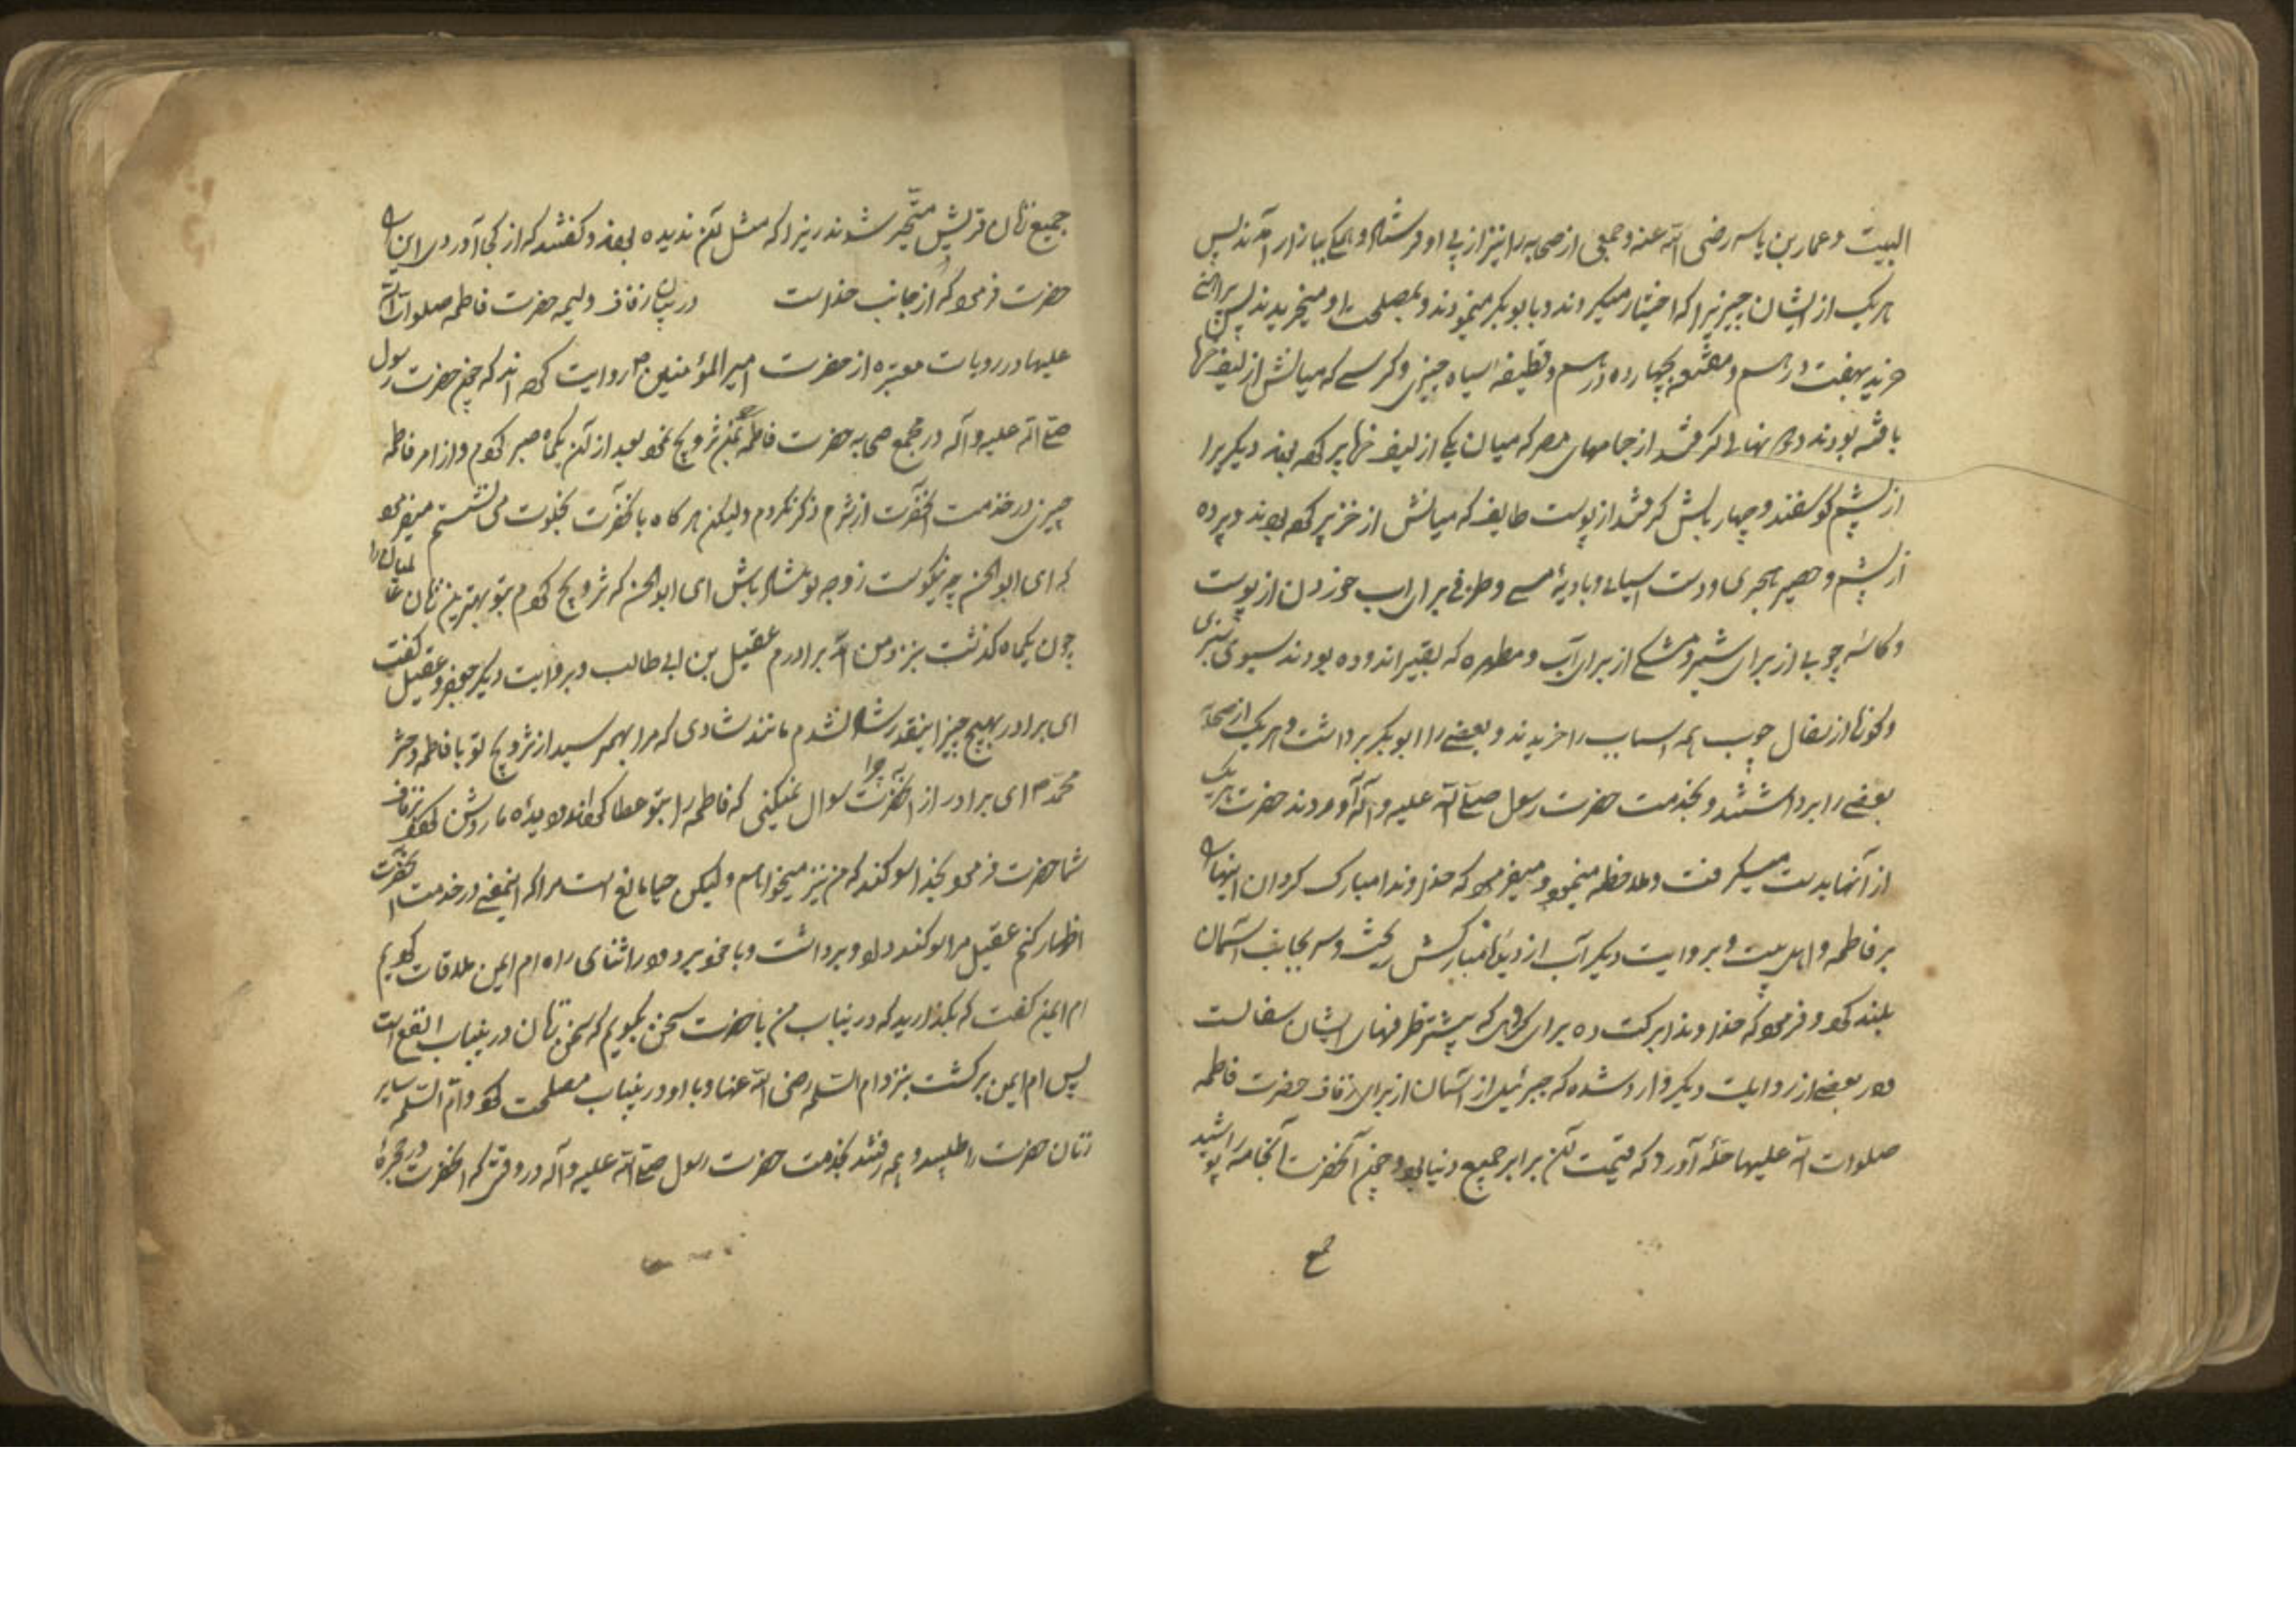 البیت و عمار بن یاسر رضی الله عنه و جمعی از صحابه را نیز از پی او فرستاد و همگی ببازار آمدند پس
هر یک از ایشان چیزیرا که اختیار میکردند و با بوبکر مینمودند و بمصلحت او میخریدند پس پیراهنی
خرید بهفت درهم و مقنعه بچهارده درهم و قطیفه سیاه خیبری و کرسی که میانش از لیف خرما
بافته بودند و دو نهالی گرفتند از جامهای مصر که میان یکی از لیف خرما پر کرده بودند دیگریرا
از پشم گوسفند و چهار بالش گرفتند از پوست طایف که میانش از خز پر کرده بودند و پرده
از پشم و حصیر هجری و دست آسیائی و بادیه مسی و ظرفی برای آب خوردن از پوست
و کاسه چوبی از برای شیر و مشکی از برای آب و مطهره که بقیر اندوده بودند سبوی سبزی
و کوزها از سفال چون همه اسباب را خریدند و بعضی را ابوبکر برداشت و هر یک از صحابه
بعضی را برداشتند و بخدمت حضرت رسول صلی الله علیه و آله آوردند حضرت هر یک
از آنها بدست میگرفت و ملاحظه مینمود و میفرمود که خداوندا مبارک گردان اینها را
بر فاطمه و اهل بیت و بروایت دیگر آب از دیدهای مبارکش ریخت و سر بجانب آسمان
بلند کرد و فرمود که خداوندا برکت ده برای گروهی که بیشتر ظرفهای ایشان سفالست
و در بعضی از روایات دیگر وارد شده که جبرئیل از آسمان از برای زفاف حضرت فاطمه
صلوات الله علیها حله آورد که قیمت آن برابر جمیع دنیا بود چون آنحضرت آنجامه را پوشید
جمیع
جمیع زنان قریش متحیر شدند زیرا که مثل آن ندیده بودند و گفتند که از کجا آوردی این را
حضرت فرمود که از جانب خداست در بیان زفاف ولیمه حضرت فاطمه صلوات الله
علیها در روایات معتبره از حضرت امیرالمؤمنین ع روایت کرده اند که چون حضرت رسول
صلی الله علیه و آله در مجمع صحابه حضرت فاطمه بمن تزویج نمود بعد از آن یکماه صبر کردم و از امر فاطمه
چیزی در خدمت آنحضرت از شرم ذکر نکردم ولیکن هر گاه با آنحضرت بخلوت می نشستم میفرمود
که ای ابوالحسن چه نیکوست زوجه تو شاد باش ای ابوالحسن که تزویج کردم بتو بهترین زنان عالمیان را
چون یکماه گذشت بنزد من آمد برادرم عقیل بن ابی طالب و بروایت دیگر جعفر و عقیل گفت
ای برادر بهیچ چیز اینقدر شاد نشدم مانند شادی که مرا بهم رسید از تزویج تو با فاطمه دختر
محمد ص ای برادر چرا از آنحضرت سوال نمیکنی که فاطمه را بتو عطا کند و دیده ما روشن گردد بزفاف
شما حضرت فرمود بخدا سوگند که من نیز میخواهم ولیکن حیا مانع است مرا که اینمعنی در خدمت آنحضرت
اظهار کنم عقیل مرا سوگند داد و برداشت و با خود برد در اثنای راه ام ایمن ملاقات کردیم
ام ایمن گفت که بگذارید که در ینباب من با حضرت سخن بگویم که سخن زنان در ینباب انفع است
پس ام ایمن برگشت بنزد ام السلمه رضی الله عنها و با او در ینباب مصلحت کرد و ام السلمه سایر
زنان حضرت را طلبید و همه رفتند بخدمت حضرت رسول صلی الله علیه و آله در وقتی که آنحضرت در حجره